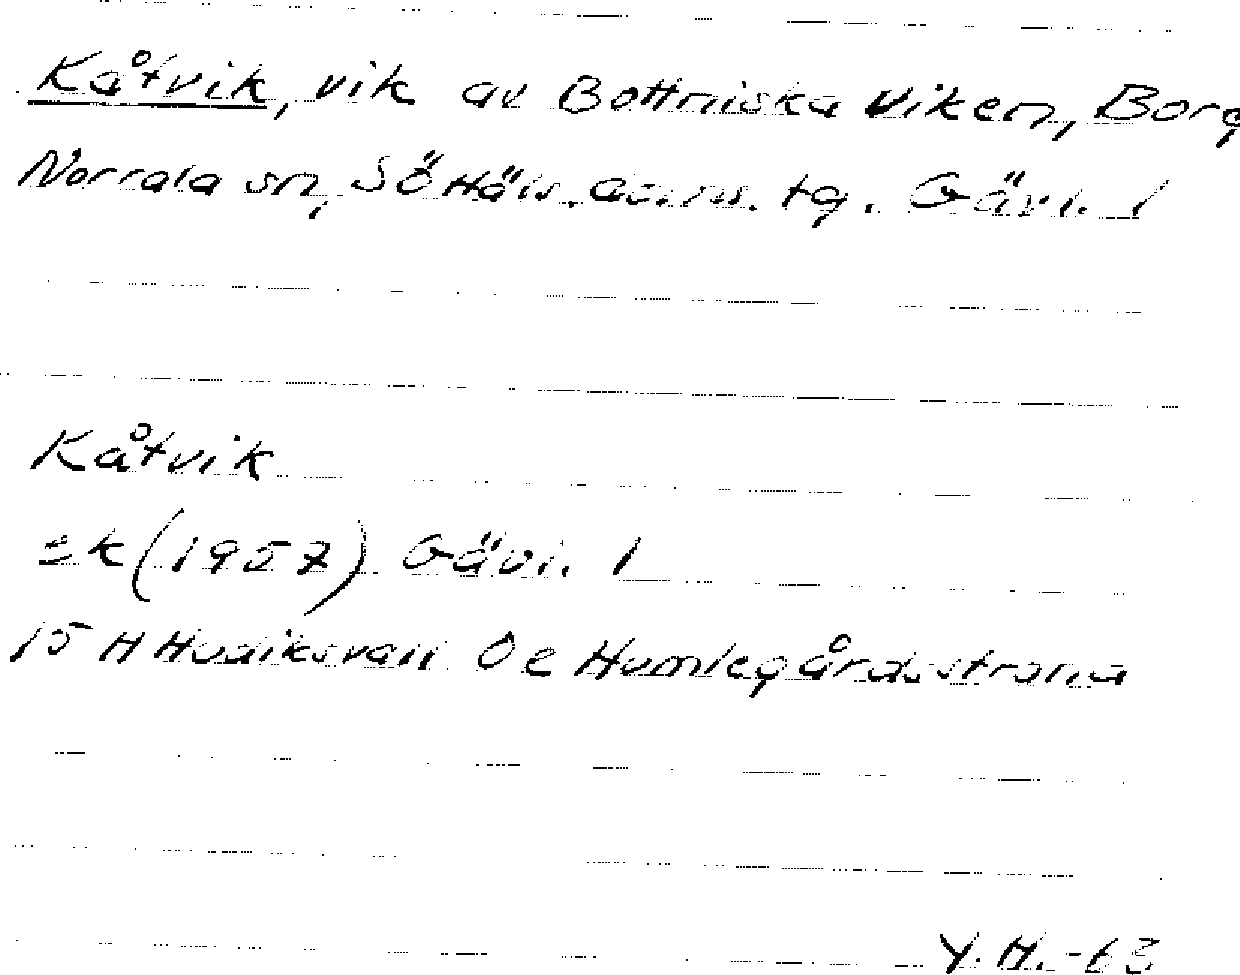 Kåtvik, vik av Bottniska viken, Borg
Norrala sn, S ö Häls. doms. tg. Gävl. l
Kåtvik
ek (1957) Gävl. l
15 H Hudiksvall 0 e Humlegårdsstrand
Y. H. -63